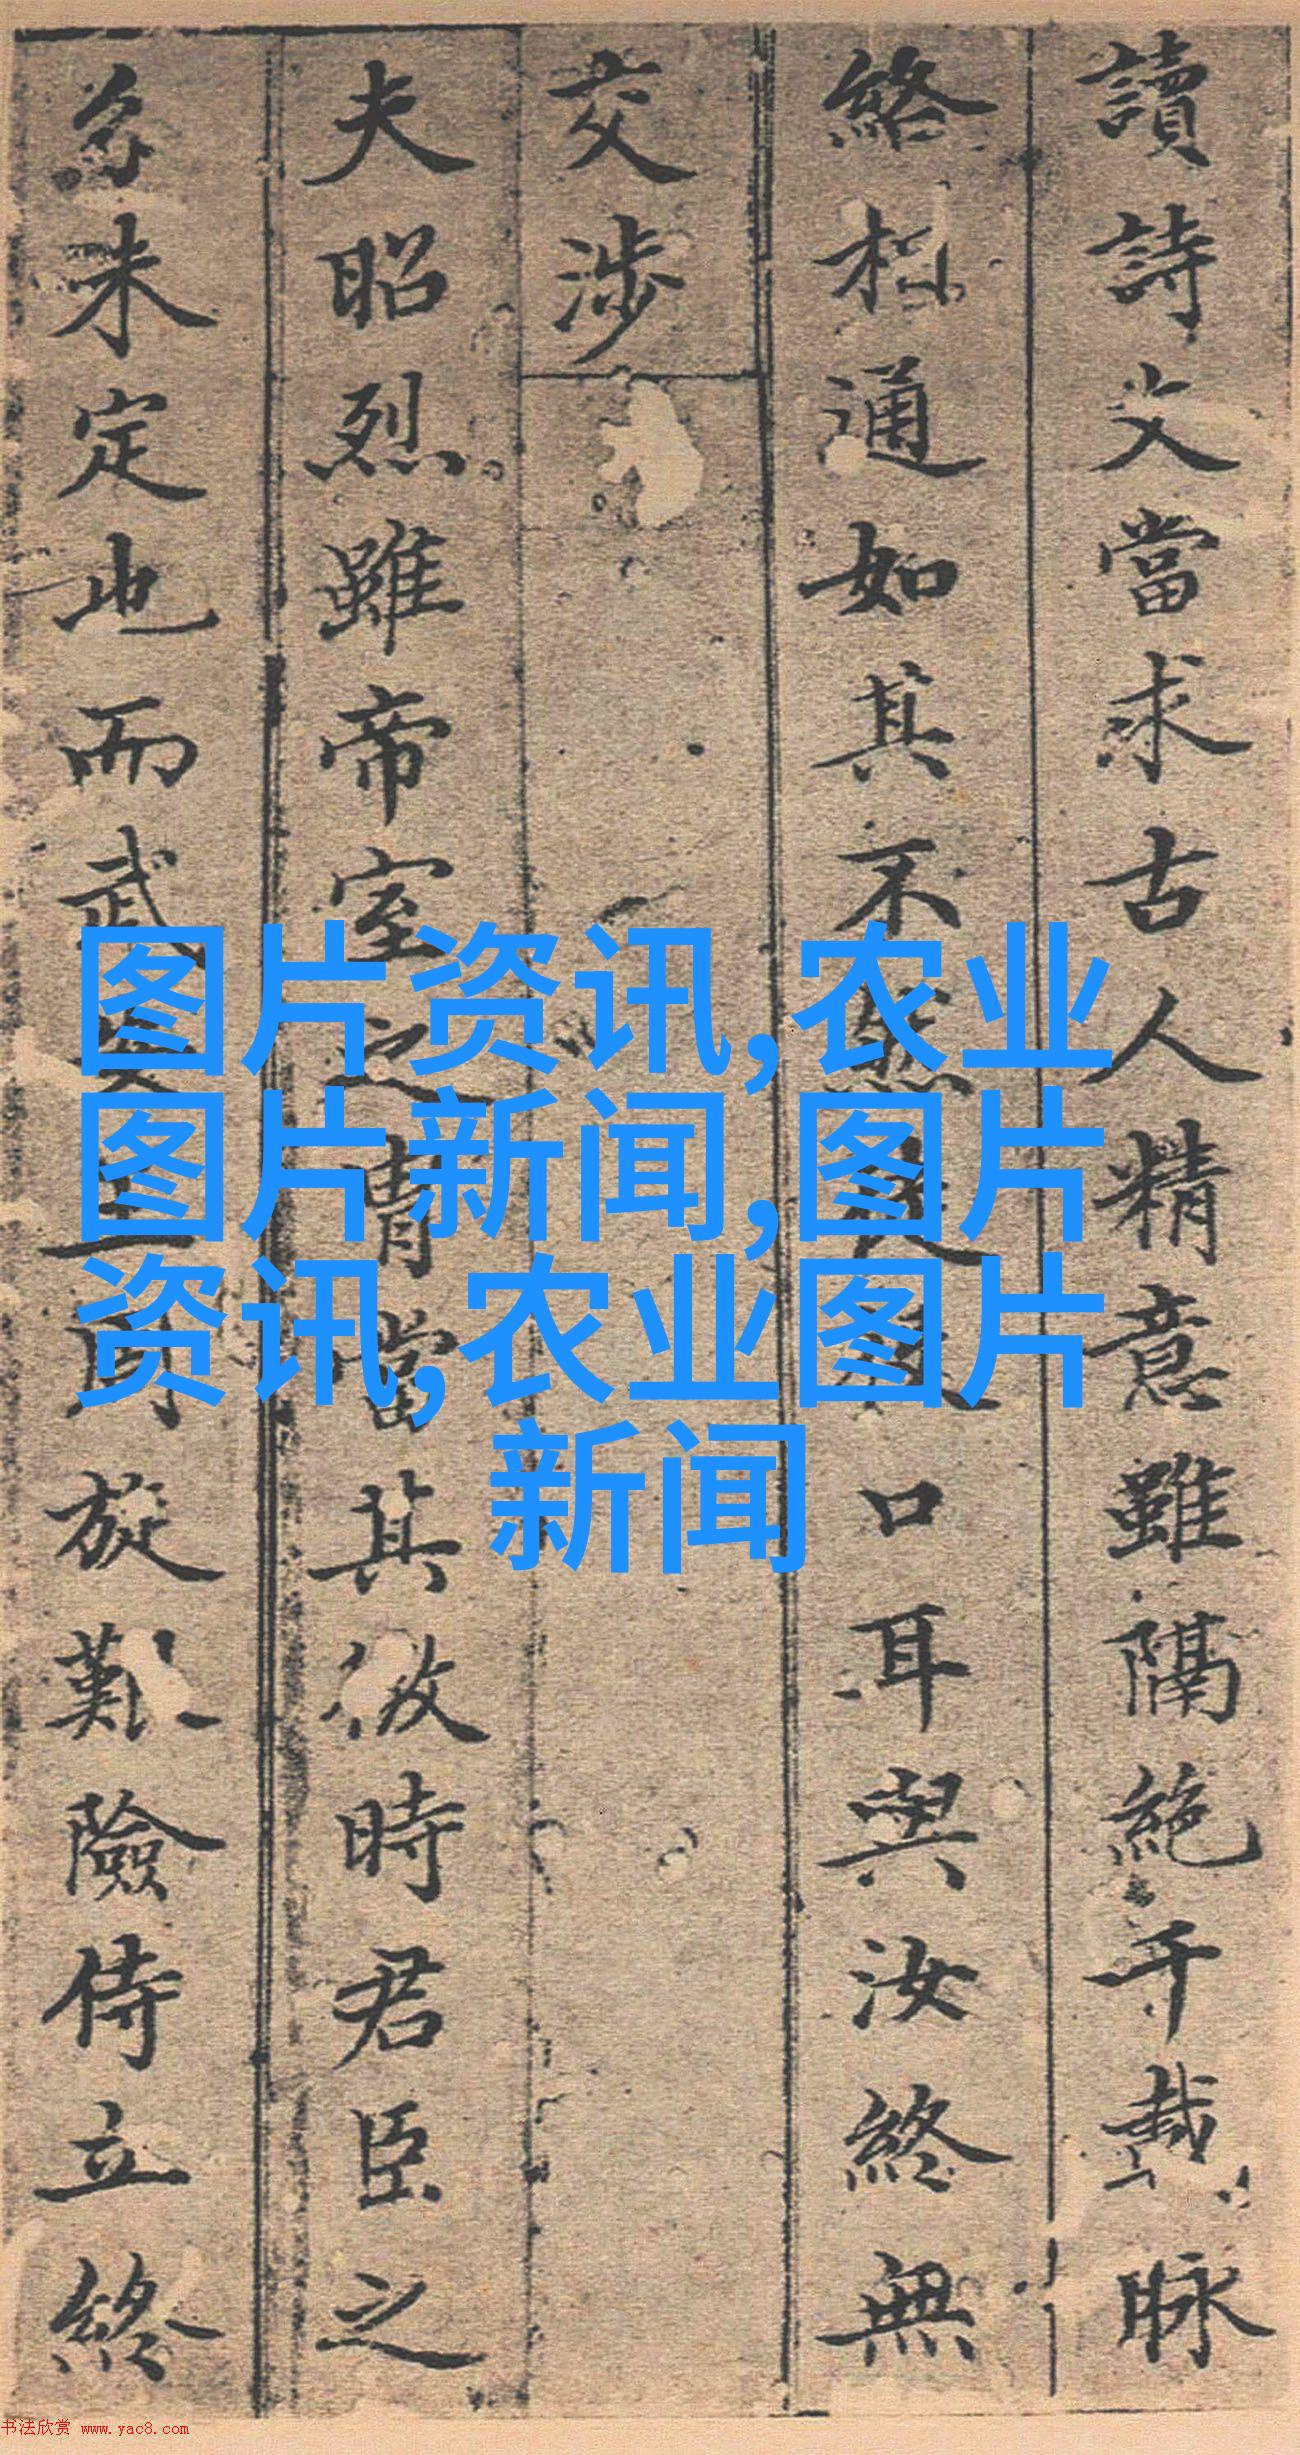 讀詩文當求古人精意雖隔絶千載脉
絡相通如其不然口耳與汝終無
交涉
夫昭烈雖帝室之當其微時君臣之
分未定也而武周旋艱險侍立終
图片资讯,农业
图片新闻,图片
资讯,农业图片
新闻
书法欣赏 www.yac8.com